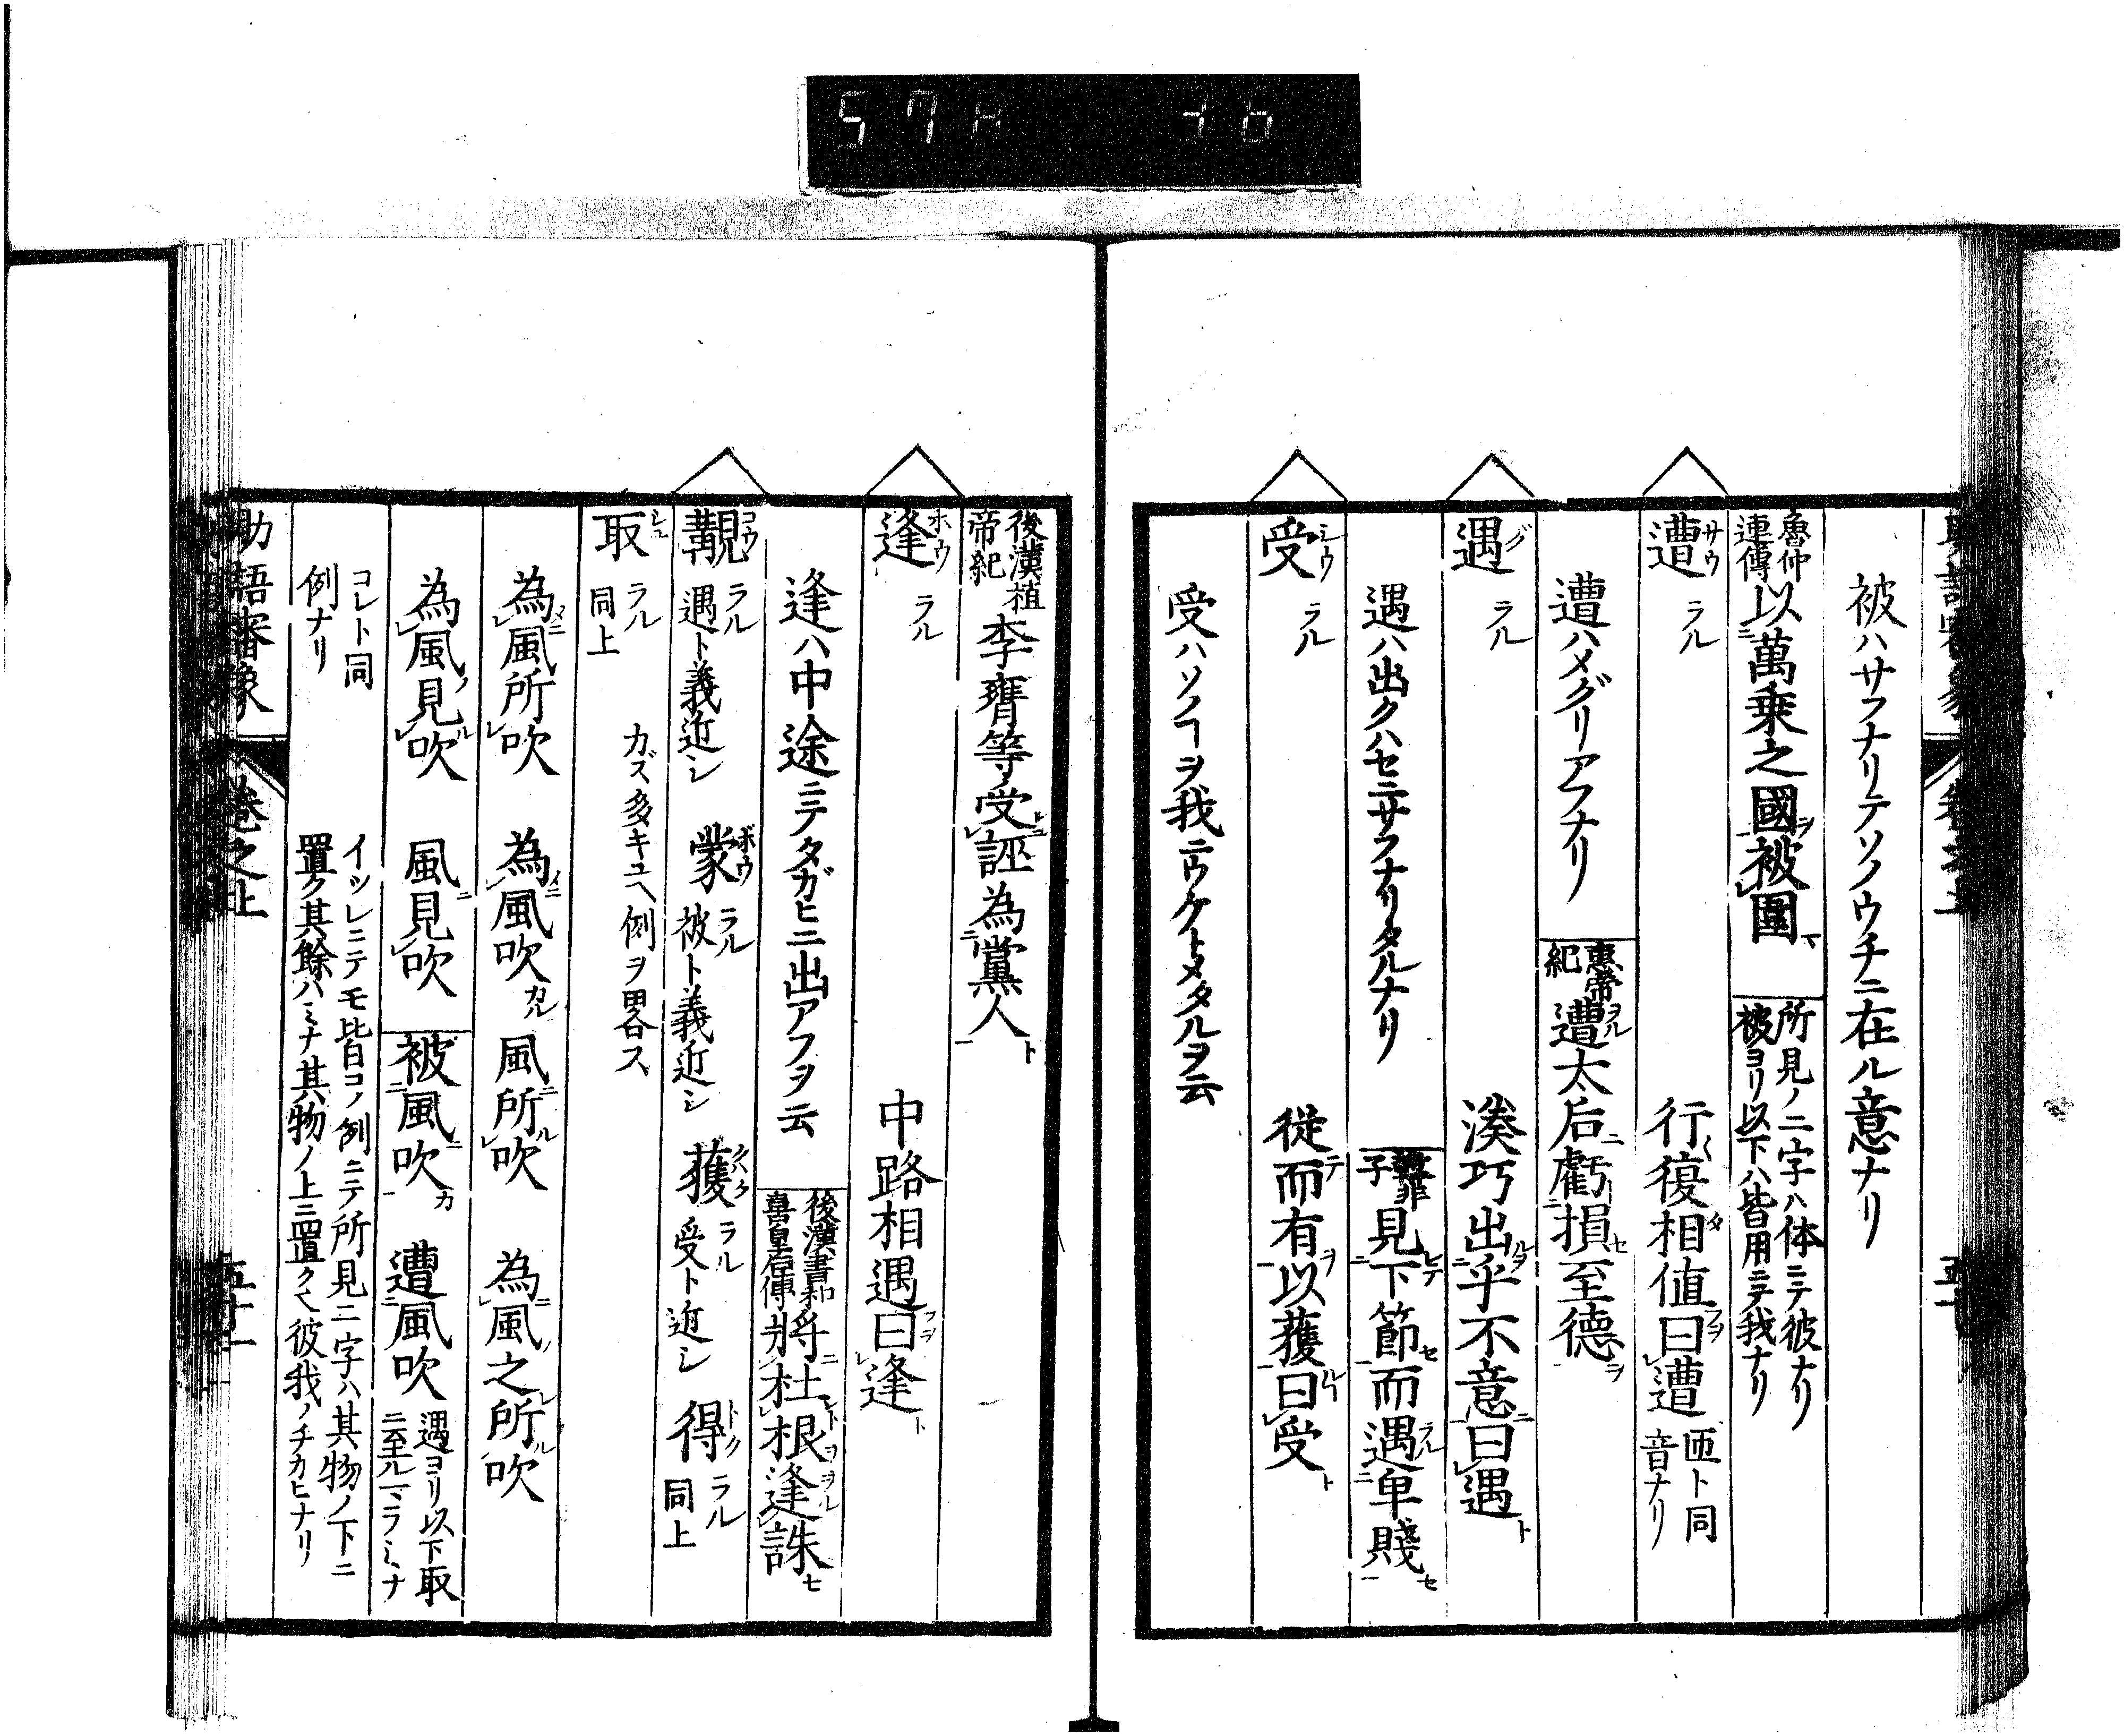 被ハサフナリテソノウチニ在ル意ナリ
魯仲連傳 以萬乗之國被圍 所見ノ二字ハ体ニテ彼ナリ
被ヨリ以下ハ皆用ニテ我ナリ
遭 サウ ラル 行復相値曰遭 匝ト同音ナリ
遭ハメグリアフナリ 惠帝紀 遭太后虧損至德
遇 グ ラル 湊巧出乎不意曰遇
遇ハ出クハセニサフナリタルナリ 韓非子 見下節而遇卑賤
受 シウ ラル 從而有以獲曰受
受ハソノヿヲ我ニウケトメタルヲ云
後漢植帝紀 李膺等受誣為黨人
逢 ホウ ラル 中路相遇曰逢
逢ハ中途ニテタガヒニ出アフヲ云 後漢書和喜皇后傳 將杜根逢誅
覯 コウ ラル 遇ト義近シ 蒙 ボウ ラル 被ト義近シ 獲 クハク ラル 受ト近シ 得 トク ラル 同上
取 シユ ラル 同上 カズ多キユヘ例ヲ畧ス
為風所吹 為風吹 風所吹 為風之所吹
為風見吹 風見吹 被風吹 遭風吹 遇ヨリ以下取
ニ至ルマテミナ
コレト同
例ナリ
イツレニテモ皆コノ例ニテ所見二字ハ其物ノ下ニ
置ク其餘ハミナ其物ノ上ニ置ク彼我ノチカヒナリ
助語審象 巻之上 五十一